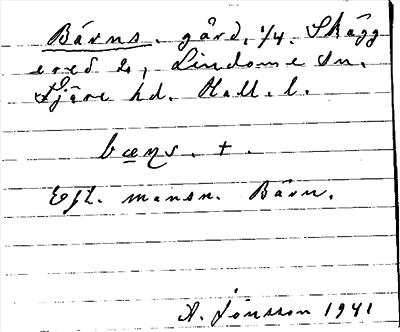 Bävns. gård, 1/4. Skägg
ered 2, Lindome sn.
Fjäre hd. Hall. l.
bæṇs. +.
Eft. mansn. Bävn.
A. Jonsson 1941